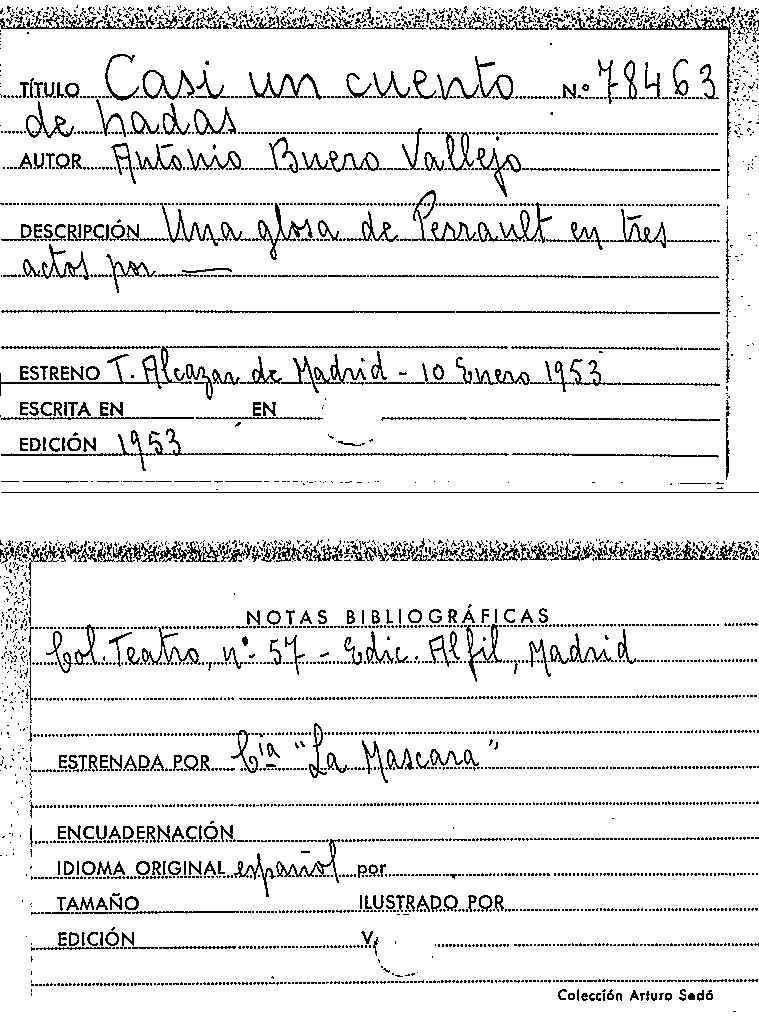 TÍTULO Casi un cuento Nº 78463
de hadas
AUTOR Antonio Buero Vallejo
DESCRIPCIÓN Una glosa de Perrault en tres
actos por —
ESTRENO T. Alcazar de Madrid - 10 Enero 1953
ESCRITA EN EN
EDICIÓN 1953
NOTAS BIBLIOGRÁFICAS
Col. Teatro, nº 57 - Edic. Alfil, Madrid
ESTRENADA POR Cía "La Mascara"
ENCUADERNACIÓN
IDIOMA ORIGINAL español por
TAMAÑO ILUSTRADO POR
EDICIÓN V.
Colección Arturo Sedó